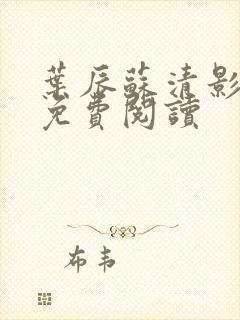 葉辰蘇清影
免費閱讀
布韦